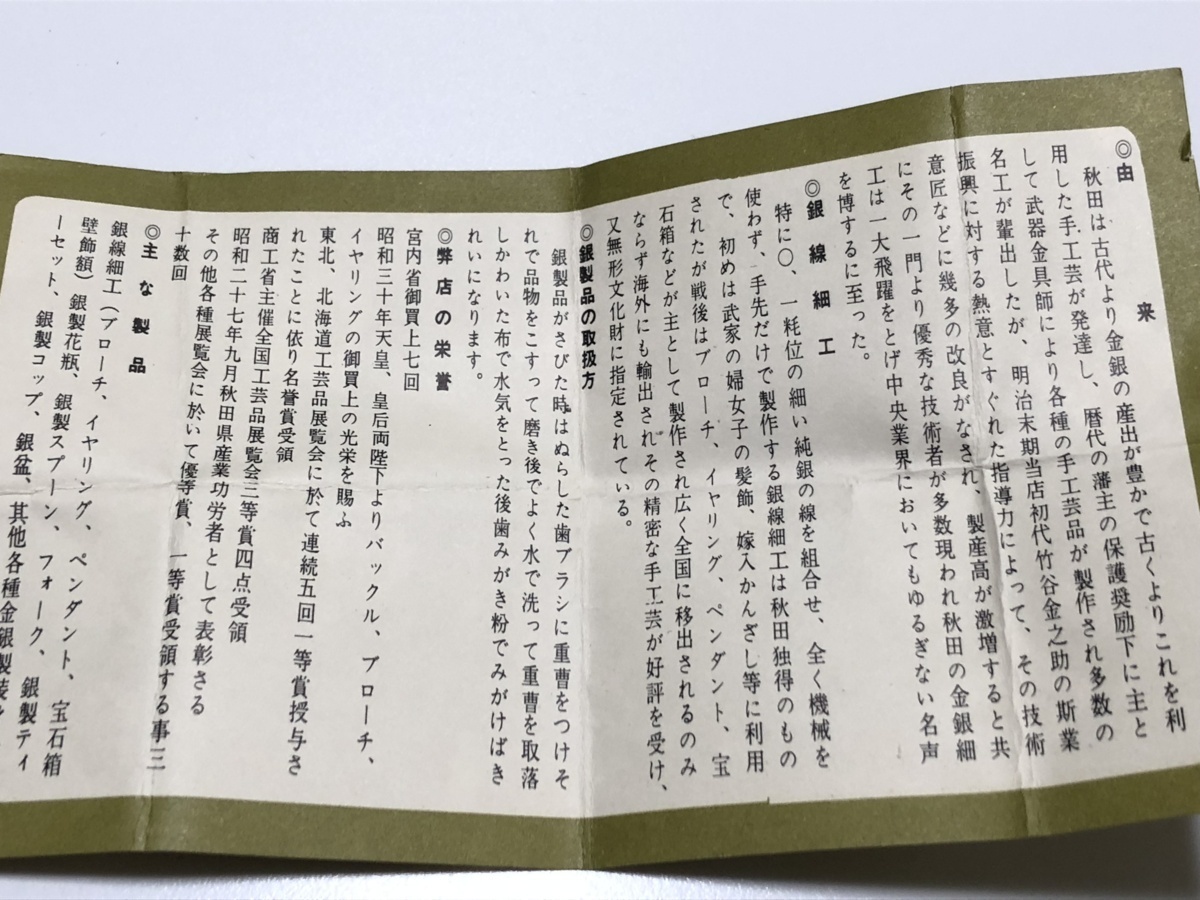 ◎由来
秋田は古代より金銀の産出が豊かで古くよりこれを利
用した手工芸が発達し、暦代の藩主の保護奨励下に主と
して武器金具師により各種の手工芸品が製作され多数の
名工が輩出したが、明治末期当店初代竹谷金之助の斯業
振興に対する熱意とすぐれた指導力によって、その技術
意匠などに幾多の改良がなされ、製産高が激増すると共
にその一門より優秀な技術者が多数現われ秋田の金銀細
工は一大飛躍をとげ中央業界においてもゆるぎない名声
を博するに至った。
◎銀線細工
特に〇、一粍位の細い純銀の線を組合せ、全く機械を
使わず、手先だけで製作する銀線細工は秋田独得のもの
で、初めは武家の婦女子の髪飾、嫁入かんざし等に利用
されたが戦後はブローチ、イヤリング、ペンダント、宝
石箱などが主として製作され広く全国に移出されるのみ
ならず海外にも輸出されその精密な手工芸が好評を受け、
又無形文化財に指定されている。
◎銀製品の取扱方
銀製品がさびた時はぬらした歯ブラシに重曹をつけそ
れで品物をこすって磨き後でよく水で洗って重曹を取落
しかわいた布で水気をとった後歯みがき粉でみがけばき
れいになります。
◎弊店の栄誉
宮内省御買上七回
昭和三十年天皇、皇后両陛下よりバックル、ブローチ、
イヤリングの御買上の光栄を賜ふ
東北、北海道工芸品展覧会に於て連続五回一等賞授与さ
れたことに依り名誉賞受領
商工省主催全国工芸品展覧会三等賞四点受領
昭和二十七年九月秋田県産業功労者として表彰さる
その他各種展覧会に於いて優等賞、一等賞受領する事三
十数回
◎主な製品
銀線細工(ブローチ、イヤリング、ペンダント、宝石箱
壁飾額)銀製花瓶、銀製スプーン、フォーク、銀製ティ
ーセット、銀製コップ、銀盆、其他各種金銀製装